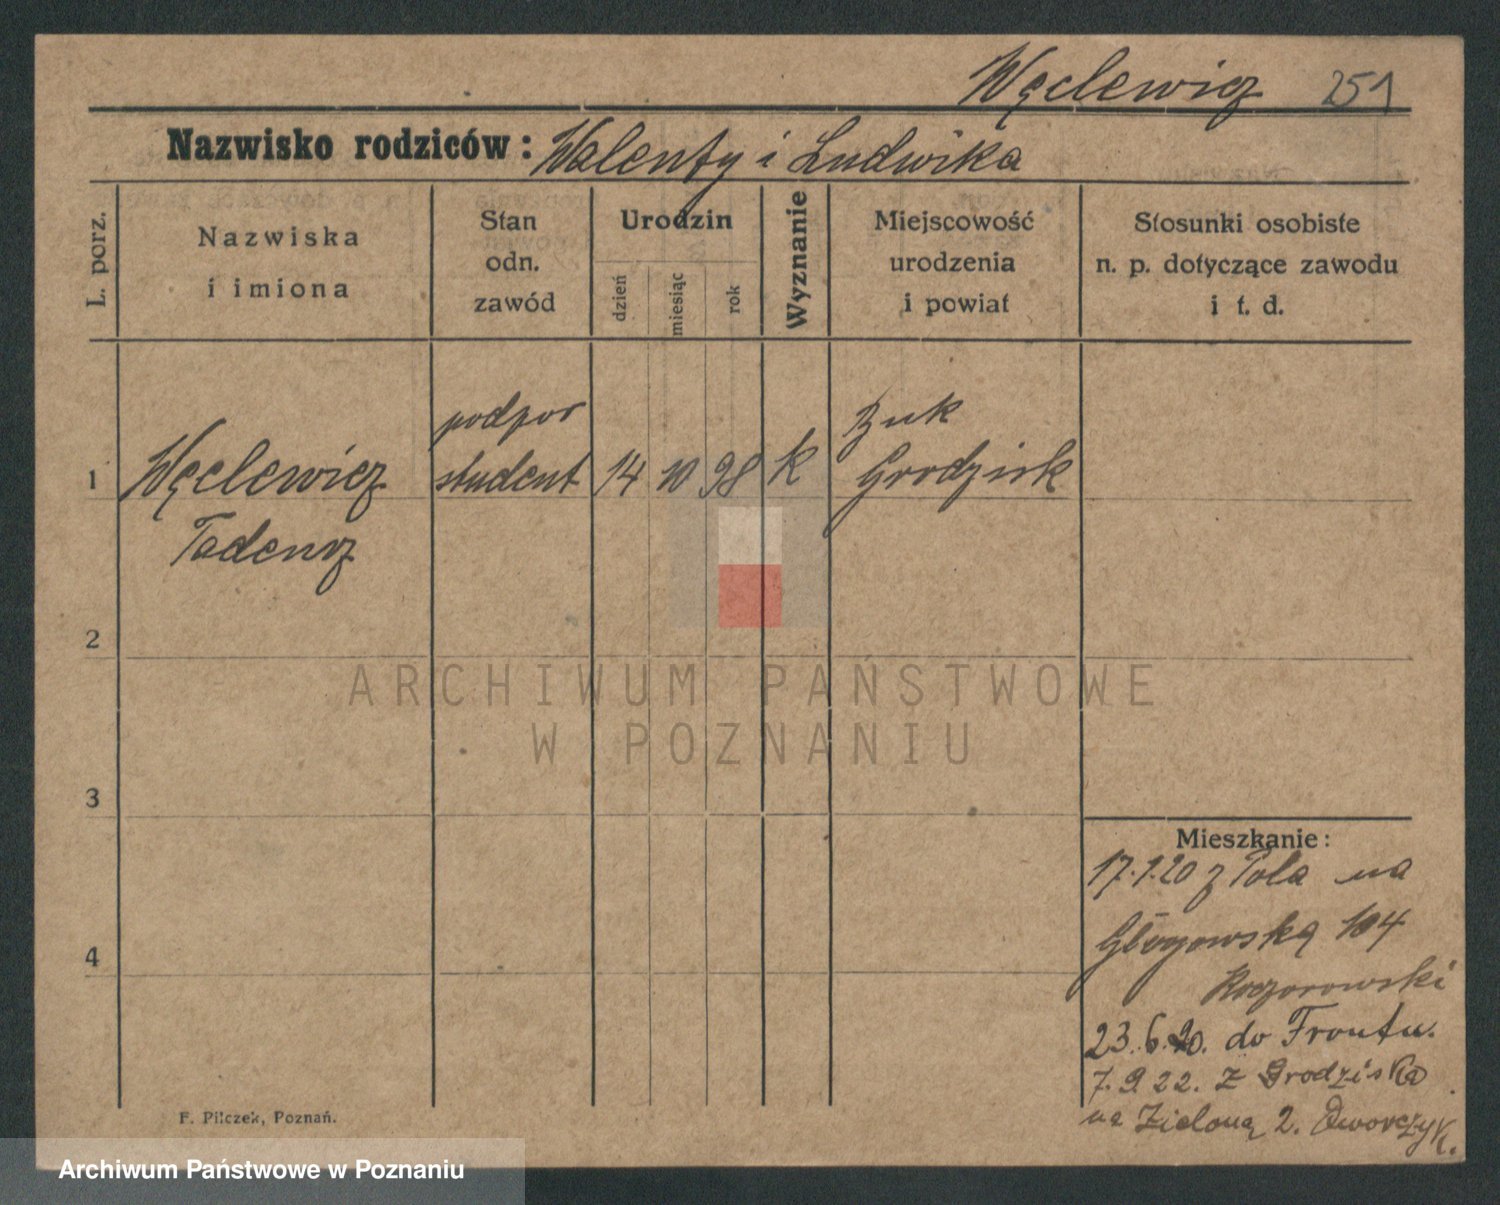 Węclewicz 251
Nazwisko rodziców: Walenty i Ludwika
L. porz.
Nazwiska
i imiona
Stan
odn.
zawód
Urodzin
dzień
miesiąc
rok
Wyznanie
Miejscowość
urodzenia
i powiat
Stosunki osobiste
n. p. dotyczące zawodu
i t. d.
1
Węclewicz
Tadeusz
podpor
student
14 10 98 k
Buk
Grodzisk
2
3
4
ARCHIWUM PAŃSTWOWE
W POZNANIU
Mieszkanie:
17.1.20 z Pola na
Głogowską 104
Koczorowski
23.6.20. do Frontu.
7.9.22. z Grodziska
na Zieloną 2. Dworczyk.
F. Pilczek, Poznań.
Archiwum Państwowe w Poznaniu